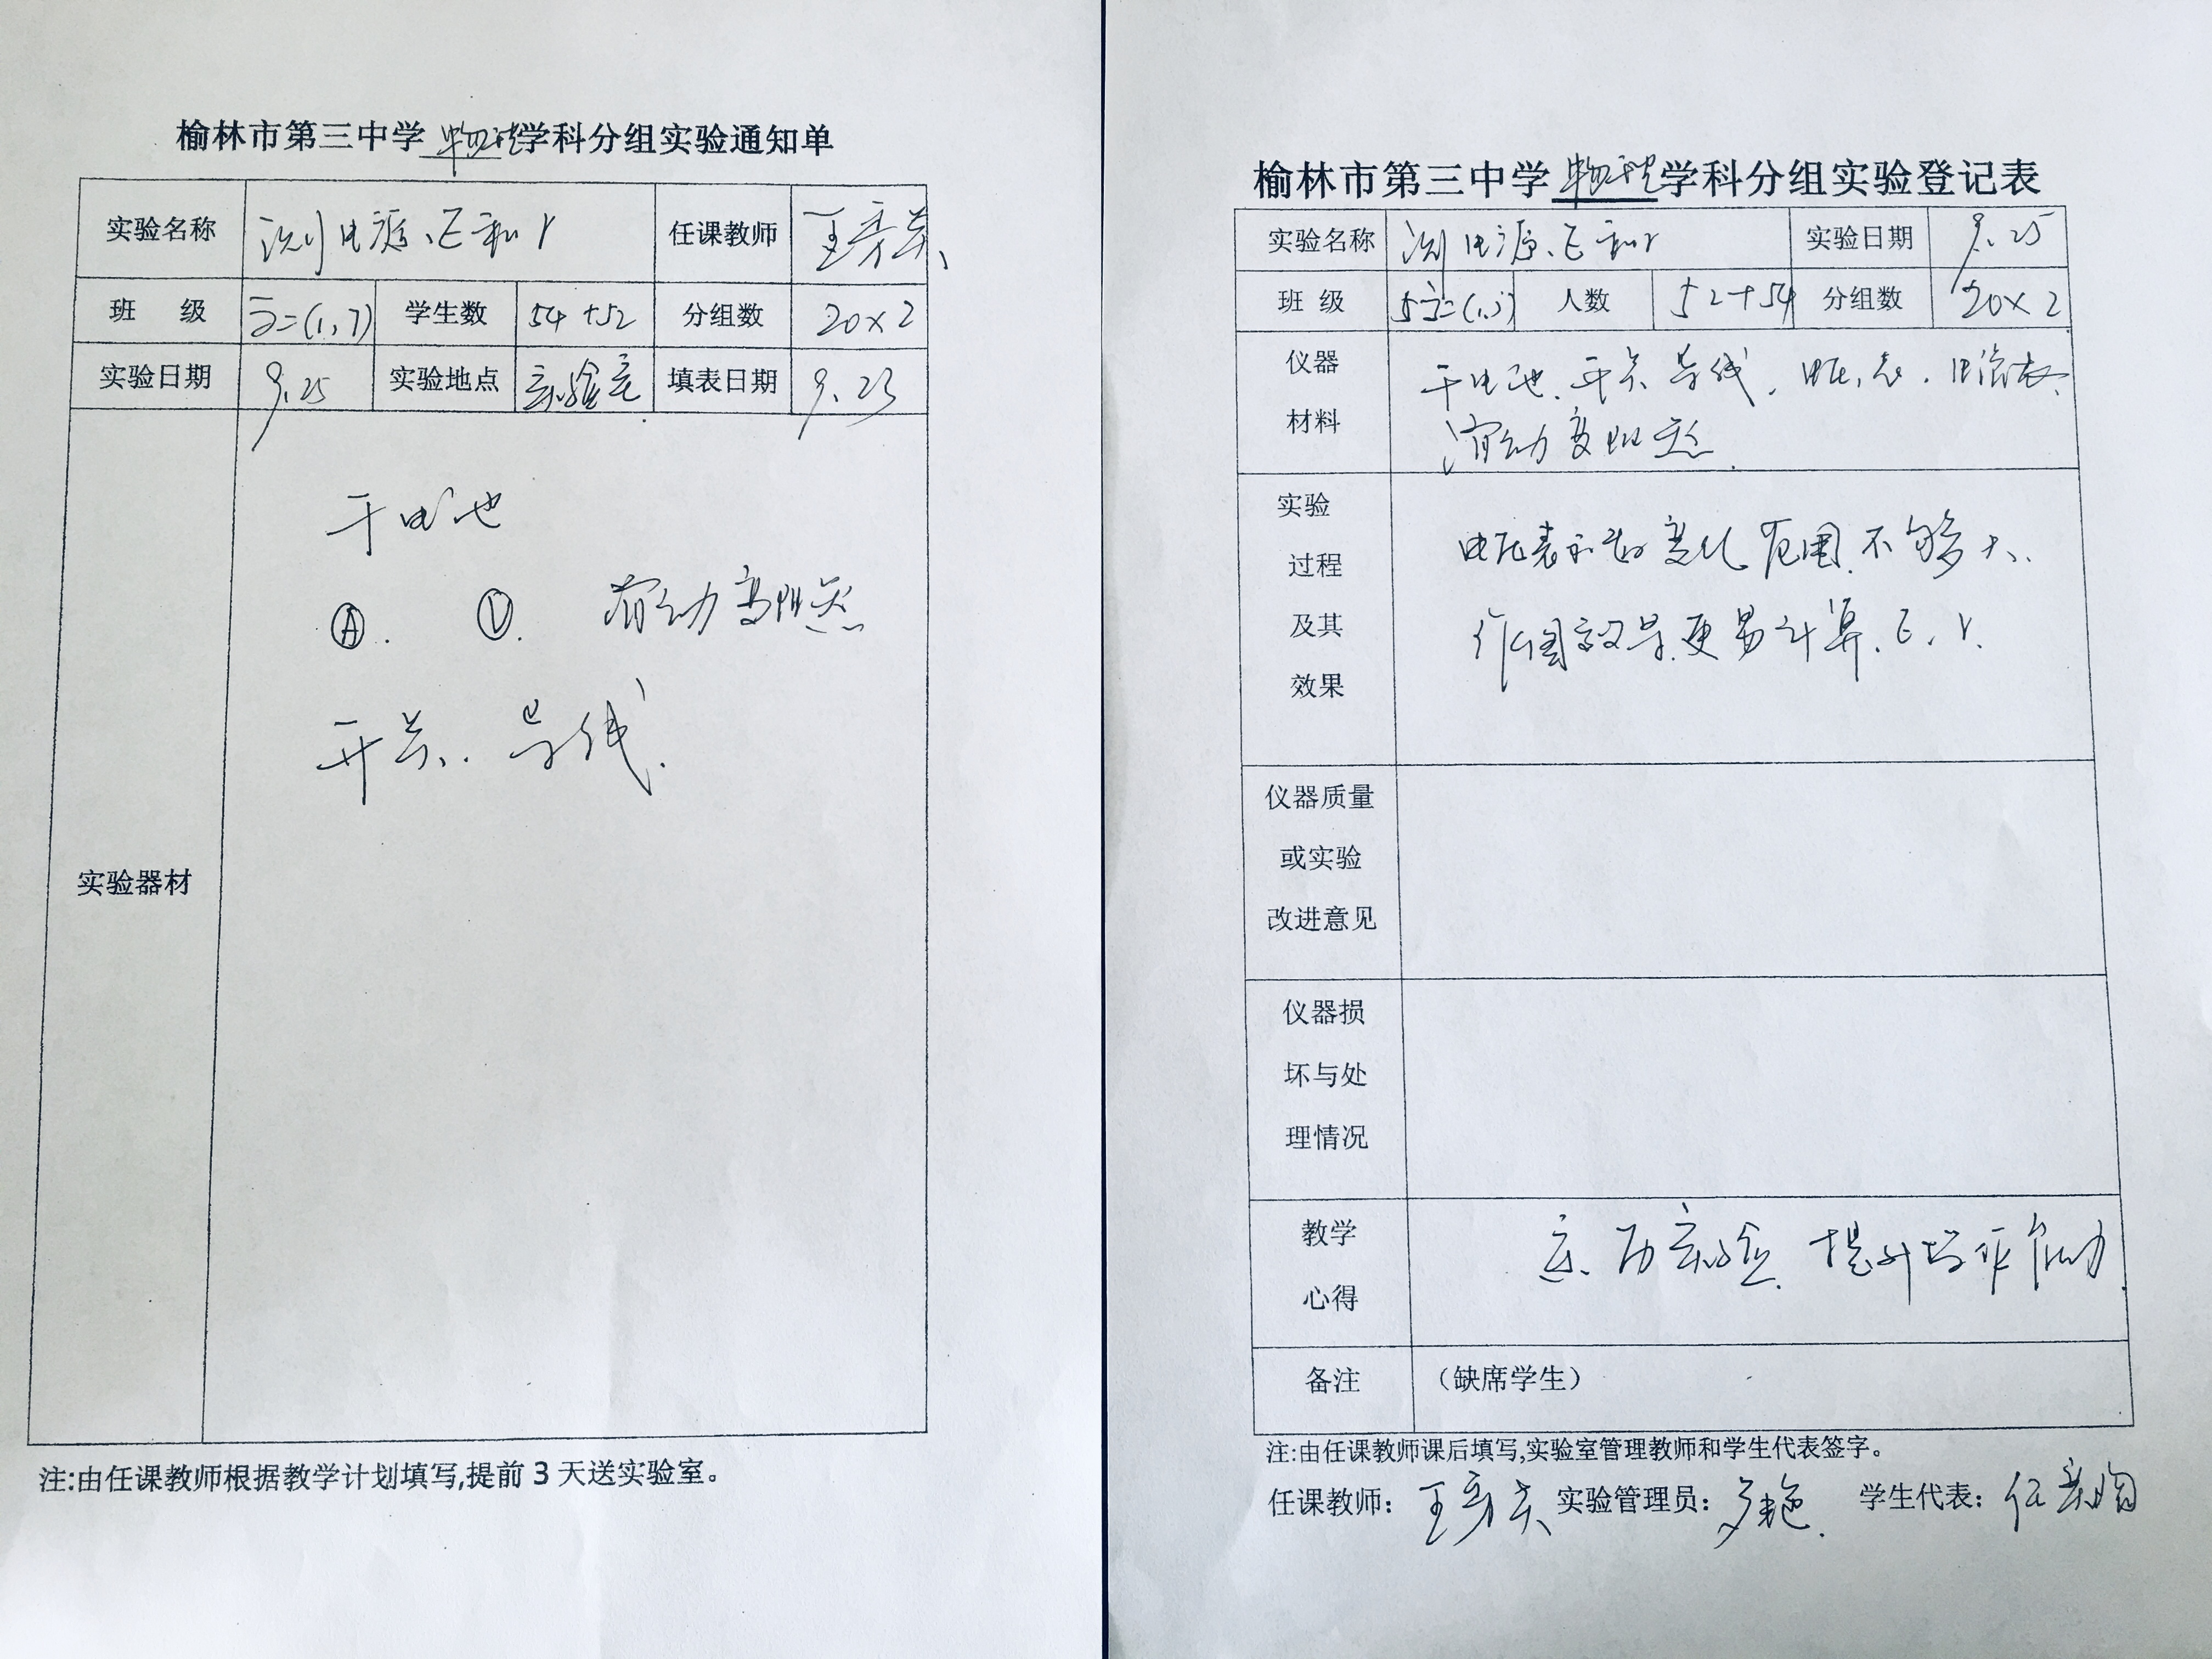 榆林市第三中学 物理 学科分组实验通知单
实验名称 测电源E和r 任课教师
班 级 高二(1,7) 学生数 54+52 分组数 20×2
实验日期 9.25 实验地点 实验室 填表日期 9.23
实验器材
干电池
Ⓐ. Ⓥ. 滑动变阻器
开关. 导线.
注:由任课教师根据教学计划填写,提前 3 天送实验室。
榆林市第三中学 物理 学科分组实验登记表
实验名称 测电源E和r 实验日期 9.25
班 级 人数 52+54 分组数 20×2
仪器
材料
干电池. 开关 导线. 电压表. 电流表.
滑动变阻器.
实验
过程
及其
效果
电压表示数变化范围不够大.
作图 更易计算.E.r.
仪器质量
或实验
改进意见
仪器损
坏与处
理情况
教学
心得
实验 提升 能力
备注 (缺席学生)
注:由任课教师课后填写,实验室管理教师和学生代表签字。
任课教师: 实验管理员: 学生代表: